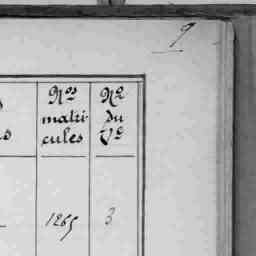 9
Nos
matri
cules
No
du
Vo
1265
3